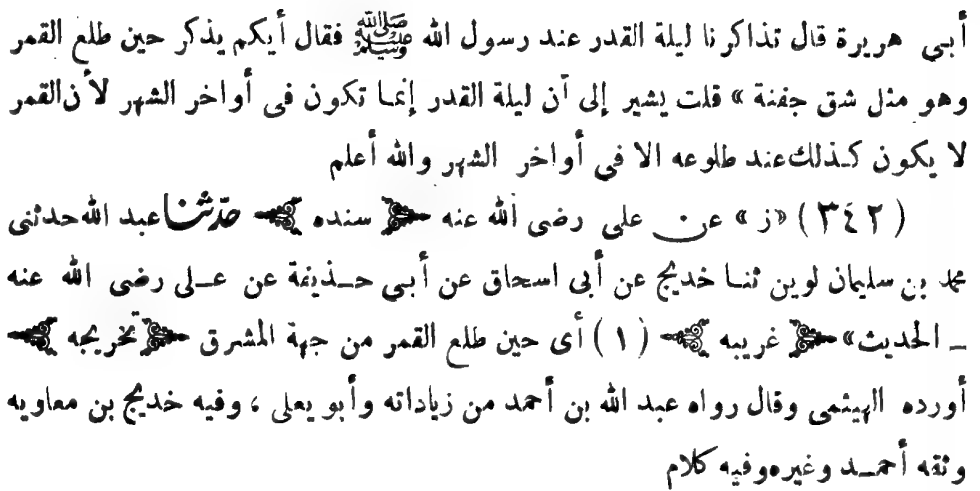 أبي هريرة قال تذاكرنا ليلة القدر عند رسول الله ﷺ فقال أيكم يذكر حين طلع القمر
وهو مثل شق جفنة » قلت يشير إلى أن ليلة القدر إنما تكون فى أواخر الشهر لأن القمر
لا يكون كذلك عند طلوعه الا في أواخر الشهر والله أعلم
(٣٤٢) «ز» عن على رضى الله عنه ﴿ سنده ﴾ حدّثنا عبد الله حدثنى
محمد بن سليمان لوين ثنا خديج عن أبى اسحاق عن أبى حذيفة عن على رضى الله عنه
ـ الحديث» ﴿ غريبه ﴾ (١) أى حين طلع القمر من جهة المشرق ﴿ تخريجه ﴾
أورده الهيثمى وقال رواه عبد الله بن أحمد من زياداته وأبو يعلى ، وفيه خديج بن معاويه
وثقه أحمد وغيره وفيه كلام